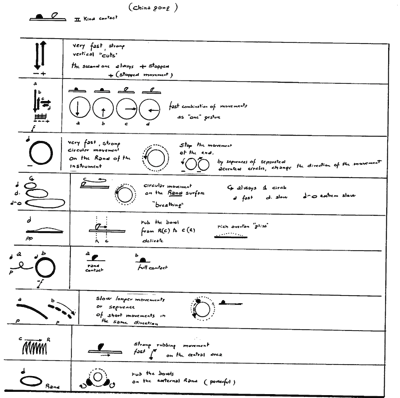 (china gong)
II Kind contact
very fast, strong
vertical "cuts"
the second one always + stopped
+ (stopped movement)
- +
a
b
f
a b c d
fast combination of movements
as "one" gesture
d
very fast, strong
circular movement
on the Rand of the
instrument
stop the movement
at the end.
by sequences of separated
decorated circles, change the direction of the movement
d
circular movement
on the Rand surface
"breathing"
always a circle
d fast d. slow
extrem slow
d
pp
rub the bowl
from R(c) to c(R)
delicate
rich overton "gliss"
a
d b
p
a
rand
contact
b
full contact
a
b
p p
slow longer movements
or sequence
of short movements in
the same direction
c R
strong rubbing movement
fast on the central area
d
Rand
rub the bowls
on the external Rand (powerful)